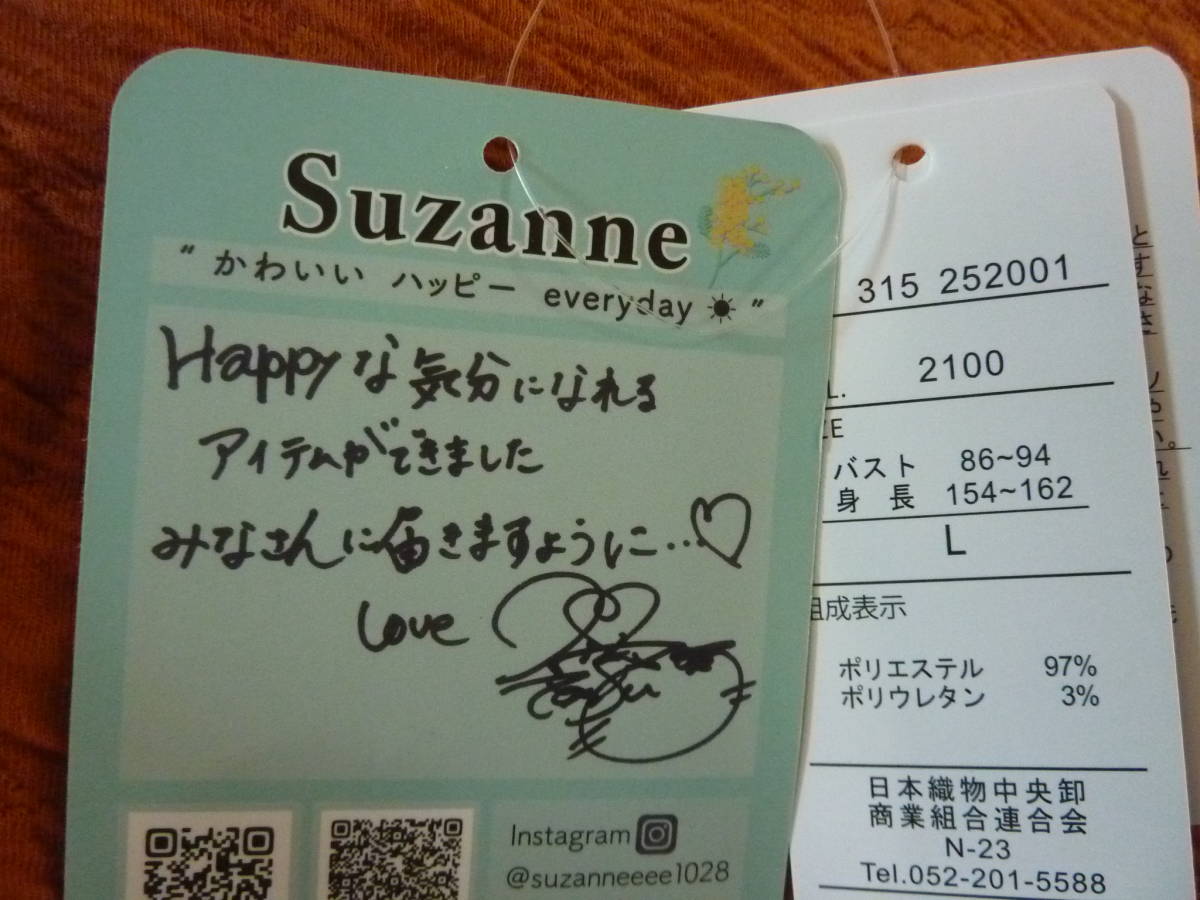 Suzanne
" かわいい ハッピー everyday ☀ "
Happyな気分になれる
アイテムができました
みなさんに届きますように…♡
Love
Instagram
@suzanneeee1028
315 252001
2100
バスト 86~94
身長 154~162
L
組成表示
ポリエステル 97%
ポリウレタン 3%
日本織物中央卸
商業組合連合会
N-23
Tel.052-201-5588